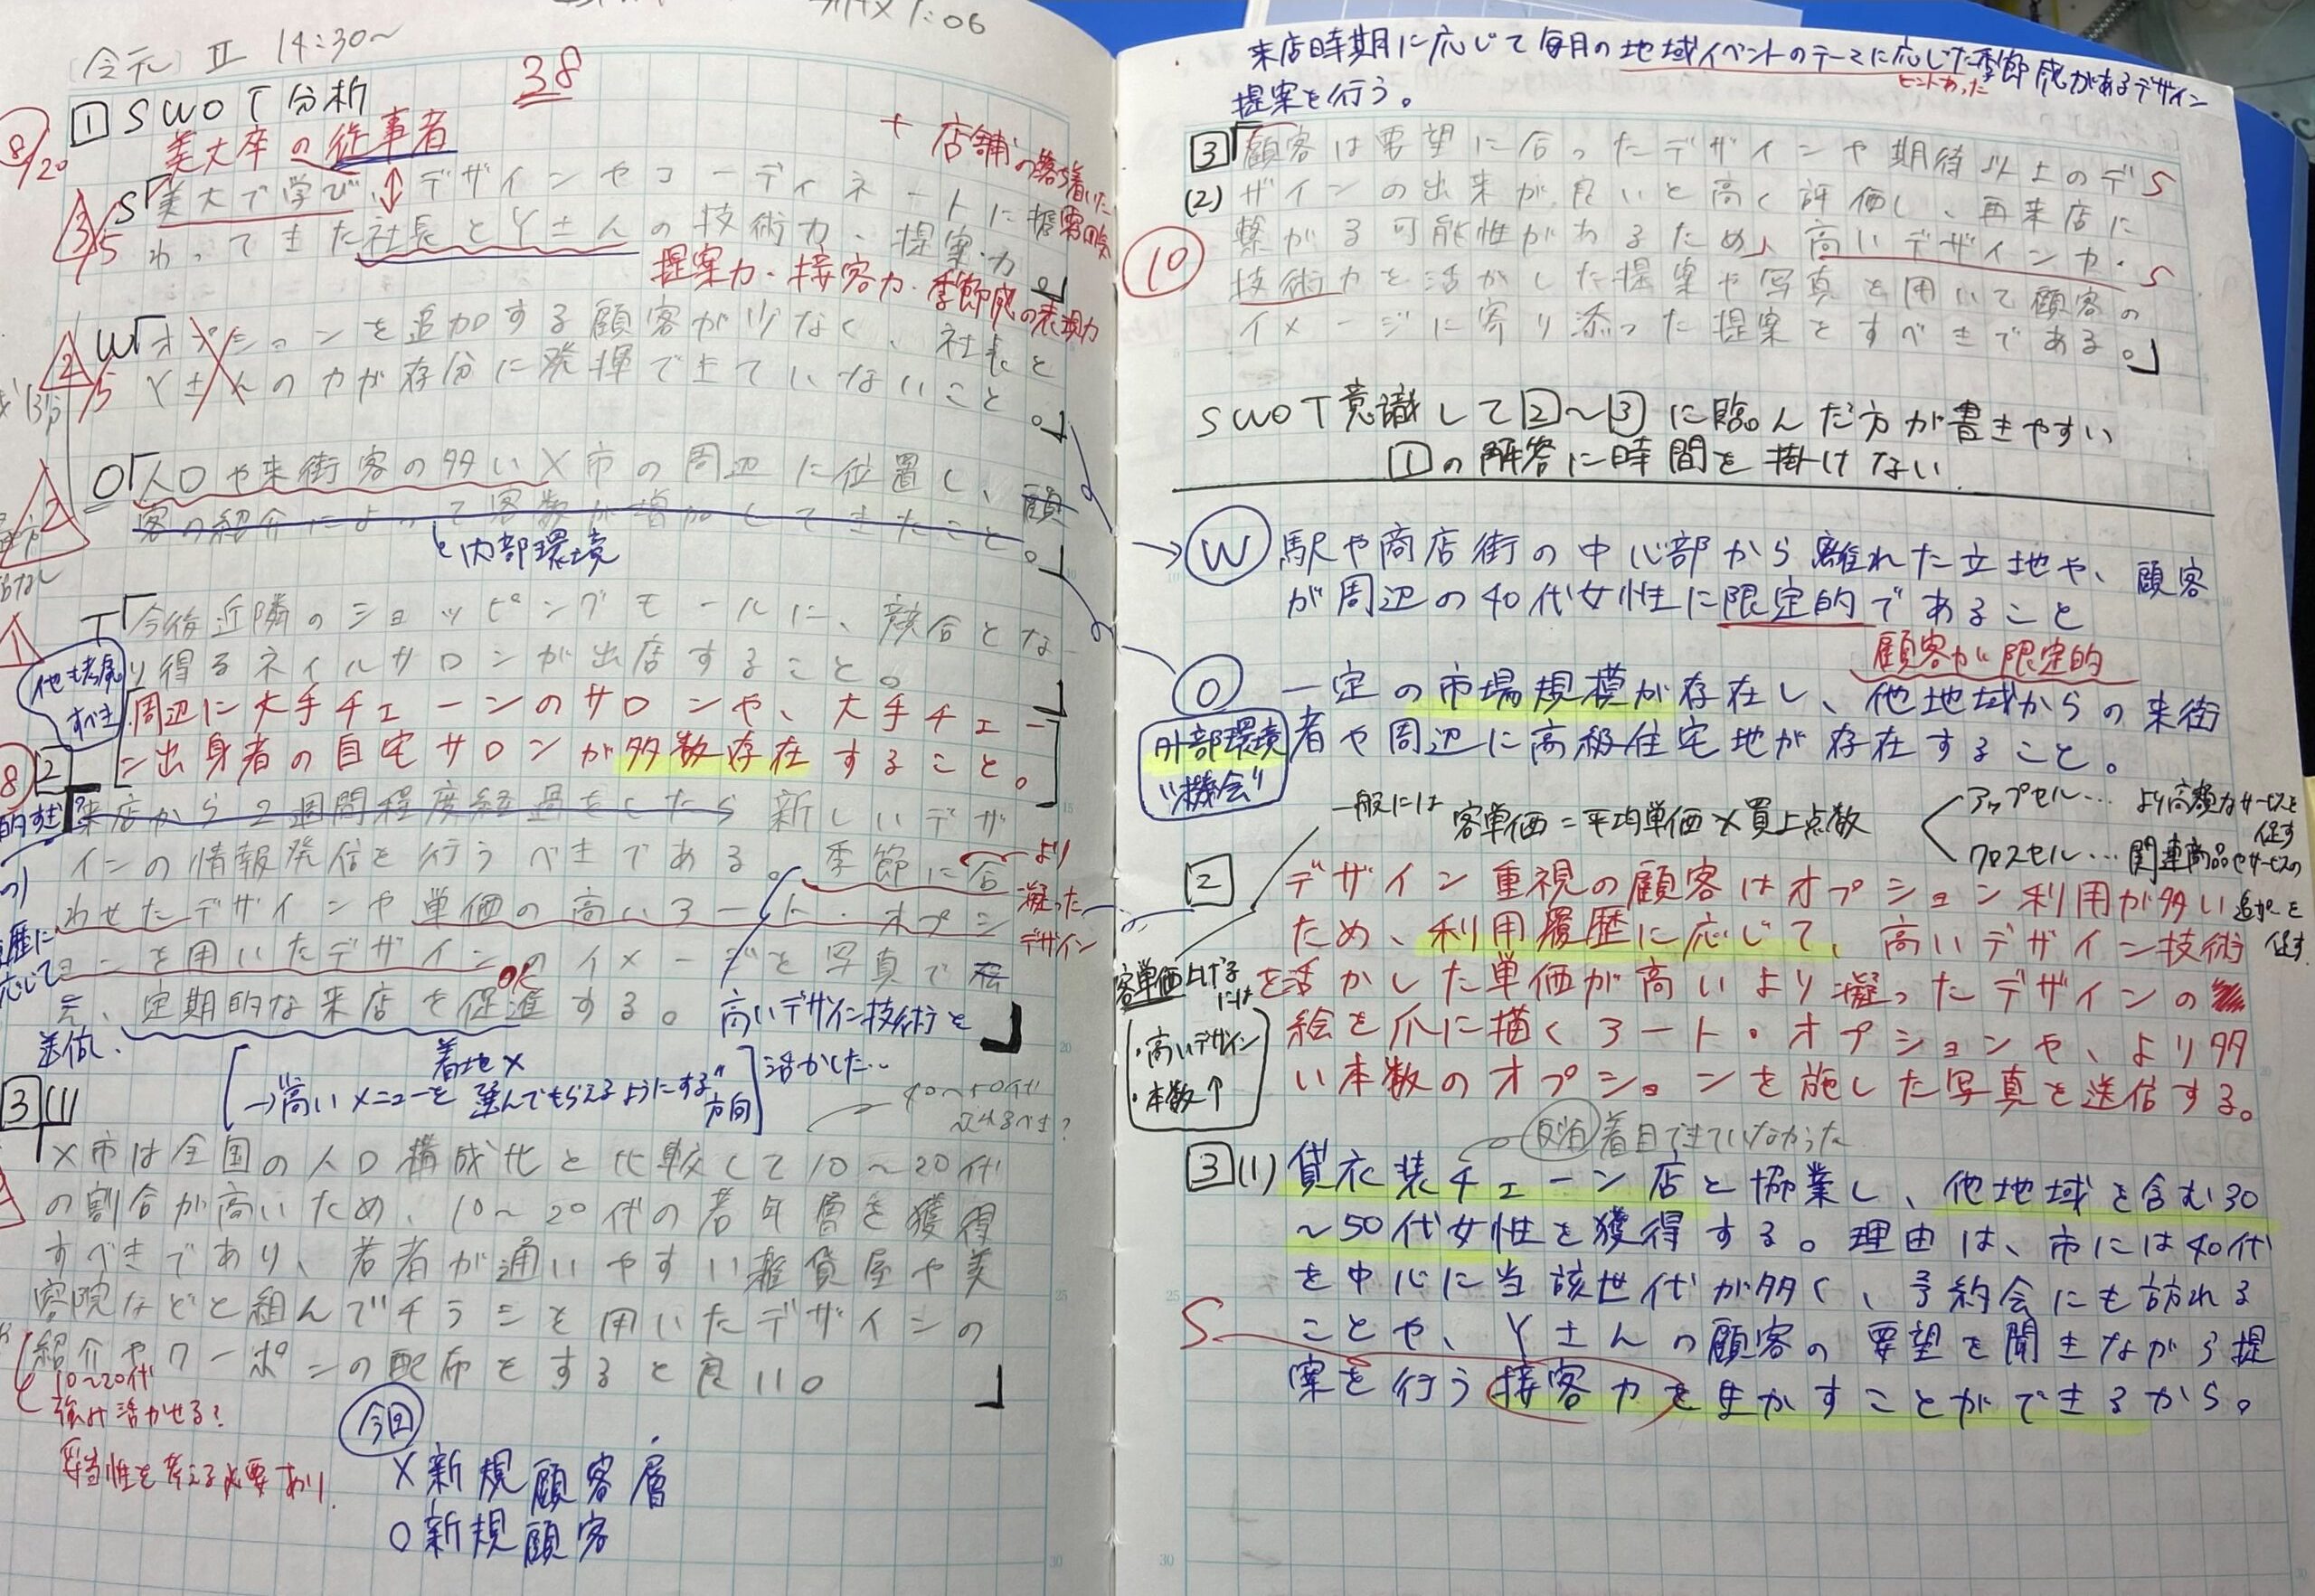 1:06
〔令元〕Ⅱ 14:30〜
38
8/20
1 SWOT分析
美大卒の従事者
+ 店舗の落ち着いた
雰囲気
3/5
S「美大で学び、デザインやコーディネートに携
わってきた社長とYさんの技術力、提案力。」
提案力・接客力・季節感の表現力
2/5
W「オプションを追加する顧客が少なく、社長と
Yさんの力が存分に発揮できていないこと。」
2
O「人口や来街客の多いX市の周辺に位置し、顧
客の紹介によって客数が増加してきたこと。」
内部環境
1
T「今後近隣のショッピングモールに、競合とな
り得るネイルサロンが出店すること。」
他も考慮
すべき
「周辺に大手チェーンのサロンや、大手チェー
ン出身者の自宅サロンが多数存在すること。」
8
2
「来店から2週間程度経過をしたら新しいデザ
インの情報発信を行うべきである。季節に合
わせたデザインや単価の高いアート・オプシ
ョンを用いたデザインのイメージを写真で伝
え、定期的な来店を促進する。」
より
凝った
デザイン
OK
歴に
応じて
送信し、
高いデザイン技術を
活かした…
着地X
[→"高いメニューを選んでもらえるようにする"方向]
3 (1)
40〜50代
X市は全国の人口構成比と比較して10〜20代
の割合が高いため、10〜20代の若年層を獲得
すべきであり、若者が通いやすい雑貨屋や美
容院などと組んでチラシを用いたデザインの
紹介やクーポンの配布をすると良い。」
10〜20代
強み活かせる?
妥当性を考える必要あり.
今回
X 新規顧客層
O 新規顧客
来店時期に応じて毎月の地域イベントのテーマに応じた季節感があるデザイン
ヒントあった
提案を行う。
3
(2)
10
「顧客は要望に合ったデザインや期待以上のデ
ザインの出来が良いと高く評価し、再来店に
繋がる可能性があるため、高いデザイン力・
技術力を活かした提案や写真を用いて顧客の
イメージに寄り添った提案をすべきである。」
S
S
SWOT意識して2〜3に臨んだ方が書きやすい
1の解答に時間を掛けない.
→W 駅や商店街の中心部から離れた立地や、顧客
が周辺の40代女性に限定的であること
顧客が限定的
O 一定の市場規模が存在し、他地域からの来街
者や周辺に高級住宅地が存在すること。
外部環境
"機会"
一般には 客単価=平均単価×買上点数
アップセル… より高額なサービスを
促す
クロスセル… 関連商品やサービスの
追加を
促す.
2 デザイン重視の顧客はオプション利用が多い
ため、利用履歴に応じて、高いデザイン技術
を活かした単価が高いより凝ったデザインの
絵を爪に描くアート・オプションや、より多
い本数のオプションを施した写真を送信する。
客単価上げる
には
・高いデザイン
・本数↑
着目できていなかった
3 (1) 貸衣装チェーン店と協業し、他地域を含む30
〜50代女性を獲得する。理由は、市には40代
を中心に当該世代が多く、予約会にも訪れる
ことや、Yさんの顧客の要望を聞きながら提
案を行う接客力を生かすことができるから。
S